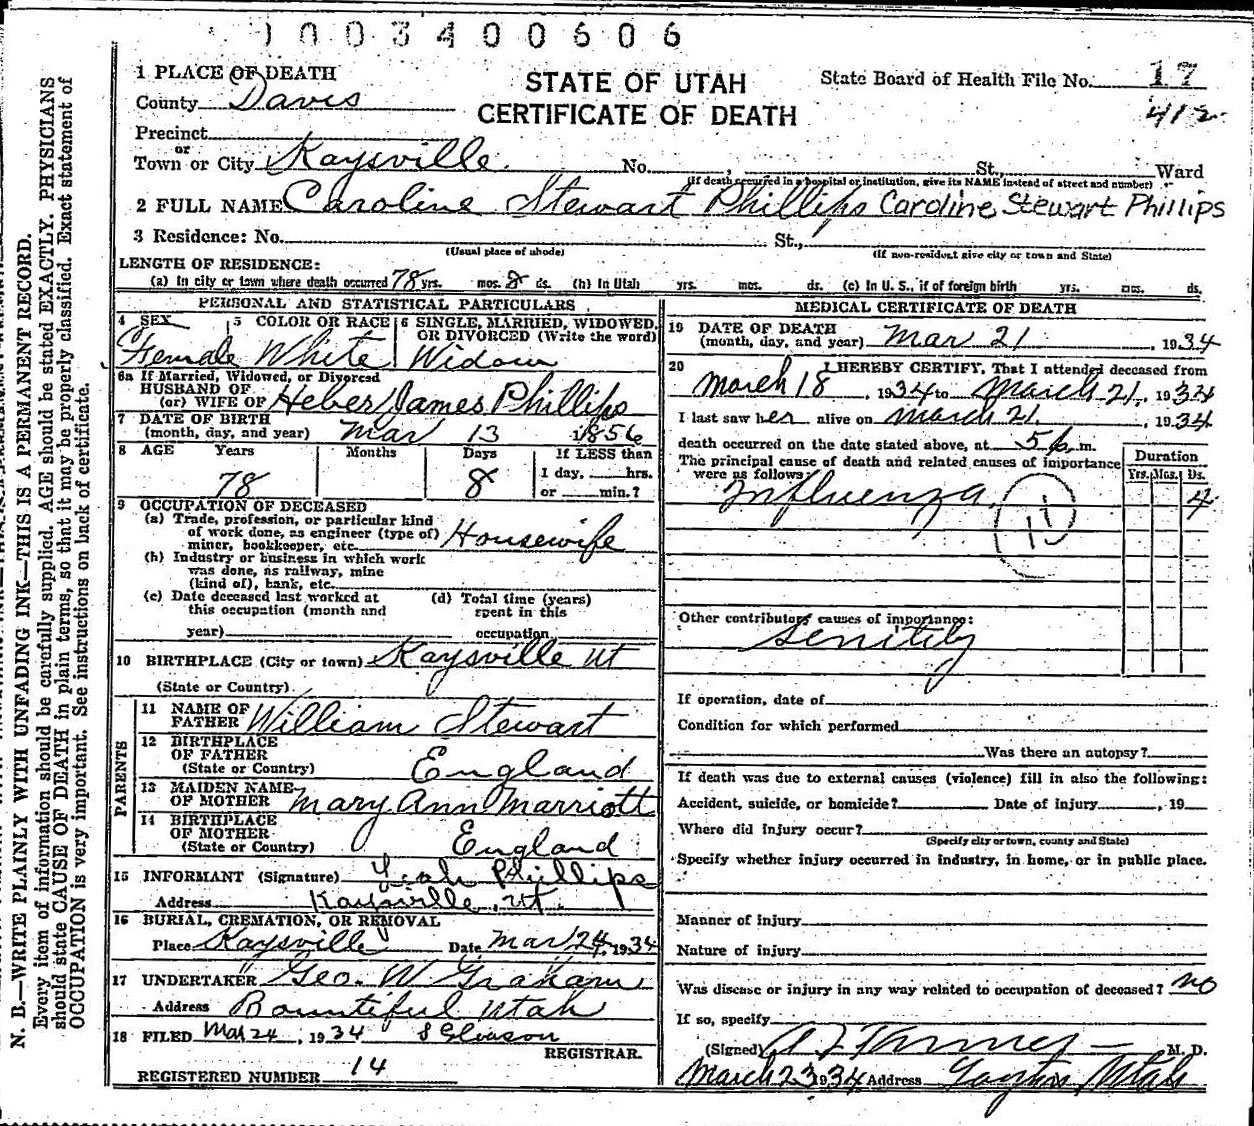 1003400606
STATE OF UTAH
CERTIFICATE OF DEATH
State Board of Health File No. 17
412
1 PLACE OF DEATH
County Davis
Precinct
or
Town or City Kaysville No. , St., Ward
(If death occurred in a hospital or institution, give its NAME instead of street and number)
2 FULL NAME Caroline Stewart Phillips Caroline Stewart Phillips
3 Residence: No. St.,
(Usual place of abode) (If non-resident give city or town and State)
LENGTH OF RESIDENCE:
(a) In city or town where death occurred 78 yrs. mos. 8 ds. (b) In Utah yrs. mos. ds. (c) In U. S., if of foreign birth yrs. mos. ds.
PERSONAL AND STATISTICAL PARTICULARS
4 SEX 5 COLOR OR RACE 6 SINGLE, MARRIED, WIDOWED,
OR DIVORCED (Write the word)
Female White Widow
6a If Married, Widowed, or Divorced
HUSBAND OF
(or) WIFE OF Heber James Phillips
7 DATE OF BIRTH
(month, day, and year) Mar 13 1856
8 AGE Years Months Days If LESS than
1 day, hrs.
78 8 or min.?
9 OCCUPATION OF DECEASED
(a) Trade, profession, or particular kind
of work done, as engineer (type of)
miner, bookkeeper, etc. Housewife
(b) Industry or business in which work
was done, as railway, mine
(kind of), bank, etc.
(c) Date deceased last worked at (d) Total time (years)
this occupation (month and spent in this
year) occupation
10 BIRTHPLACE (City or town) Kaysville Ut
(State or Country)
PARENTS
11 NAME OF
FATHER William Stewart
12 BIRTHPLACE
OF FATHER
(State or Country) England
13 MAIDEN NAME
OF MOTHER Mary Ann Marriott
14 BIRTHPLACE
OF MOTHER
(State or Country) England
15 INFORMANT (Signature) Leah Phillips
Address Kaysville, Ut.
16 BURIAL, CREMATION, OR REMOVAL
Place Kaysville Date Mar 24, 1934
17 UNDERTAKER Geo. W Graham
Address Bountiful Utah
18 FILED Mar 24, 1934 S Gleason
REGISTRAR.
REGISTERED NUMBER 14
MEDICAL CERTIFICATE OF DEATH
19 DATE OF DEATH
(month, day, and year) Mar 21, 1934
20 I HEREBY CERTIFY, That I attended deceased from
March 18, 1934 to March 21, 1934
I last saw her alive on March 21, 1934
death occurred on the date stated above, at 5 p. m.
The principal cause of death and related causes of importance
were as follows: Duration
Yrs. Mos. Ds.
Influenza 4
11
Other contributory causes of importance:
Senility
If operation, date of
Condition for which performed
Was there an autopsy?
If death was due to external causes (violence) fill in also the following:
Accident, suicide, or homicide? Date of injury , 19
Where did injury occur?
(Specify city or town, county and State)
Specify whether injury occurred in industry, in home, or in public place.
Manner of injury
Nature of injury
Was disease or injury in any way related to occupation of deceased? no
If so, specify
(Signed) M. D.
March 23 1934 Address Layton, Utah
N. B.—WRITE PLAINLY WITH UNFADING INK—THIS IS A PERMANENT RECORD.
Every item of information should be carefully supplied. AGE should be stated EXACTLY. PHYSICIANS
should state CAUSE OF DEATH in plain terms, so that it may be properly classified. Exact statement of
OCCUPATION is very important. See instructions on back of certificate.